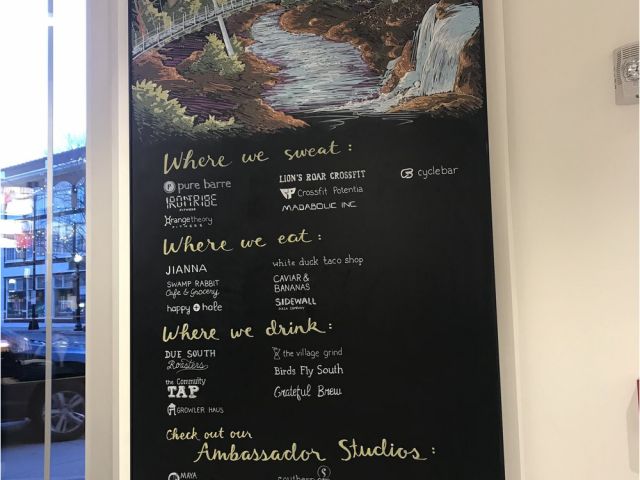 Where we sweat:
pure barre
IRONTRIBE
FITNESS
Orangetheory
FITNESS
LION'S ROAR CROSSFIT
Crossfit Potentia
MADABOLIC INC
cyclebar
Where we eat:
JIANNA
SWAMP RABBIT
Cafe & Grocery
happy + hale
white duck taco shop
CAVIAR &
BANANAS
SIDEWALL
PIZZA COMPANY
Where we drink:
DUE SOUTH
Roasters
the Community
TAP
GROWLER HAUS
the village grind
Birds Fly South
Grateful Brew
Check out our
Ambassador Studios:
MAYA
southern